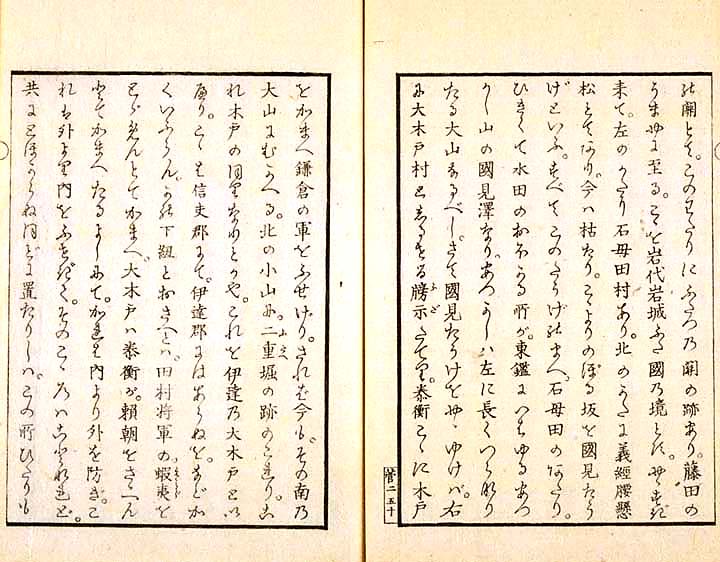 關とて。このわたりにふたつ乃關の跡あり。藤田の
うまやに至る。こゝを岩代岩城ふた國乃境とす。やゝすぎ
来て。左のかたに石母田村あり。北のかたに義經腰懸
松とてあり。今ハ枯たり。こゝよりのぼる坂を國見たう
げといふ。すべてこのたうげのまへ。石母田のあたり。
ひきくて水田のおほかる所が。東鑑にいはゆるあつ
かし山の國見澤なり。あつかしハ左に長くつらなり
たる大山なるべし。さて國見たうげをやゝゆけバ。右
に大木戸村としるせる牓示たてり。泰衡こゝに木戸
菅二五十
をかまへ鎌倉の軍をふせげり。されば今も。その南乃
大山にむかへる。北の小山に。二重堀の跡のこれり。こ
れ木戸のなりとかや。これを伊達乃大木戸とい
へり。こゝは信夫郡にて。伊達郡にはあらぬを。などか
くいふらん。下紐とハ。田村将軍の蝦夷を
とゞめんとてかまへ。大木戸ハ泰衡が。頼朝をさゝへん
とてかまへたるよしにて。かれは内より外を防ぎ。こ
れは外より内をふせぎて。そのこゝろハことなれど。
共にとほからぬに置たりしハ。この所